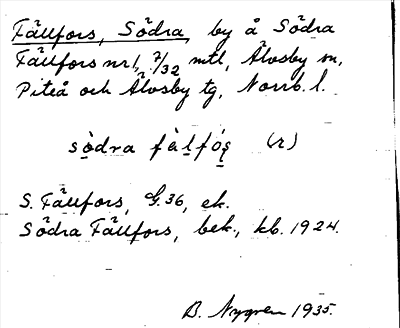 Fällfors, Södra, by å Södra
Fällfors nr 1, 7/32 mtl, Älvsby sn,
Piteå och Älvsby tg, Norrb. l.
södra fälfọ́ṣ (r)
S. Fällfors, G. 36, ek.
Södra Fällfors, bek., kb. 1924.
B. Nygren 1935.